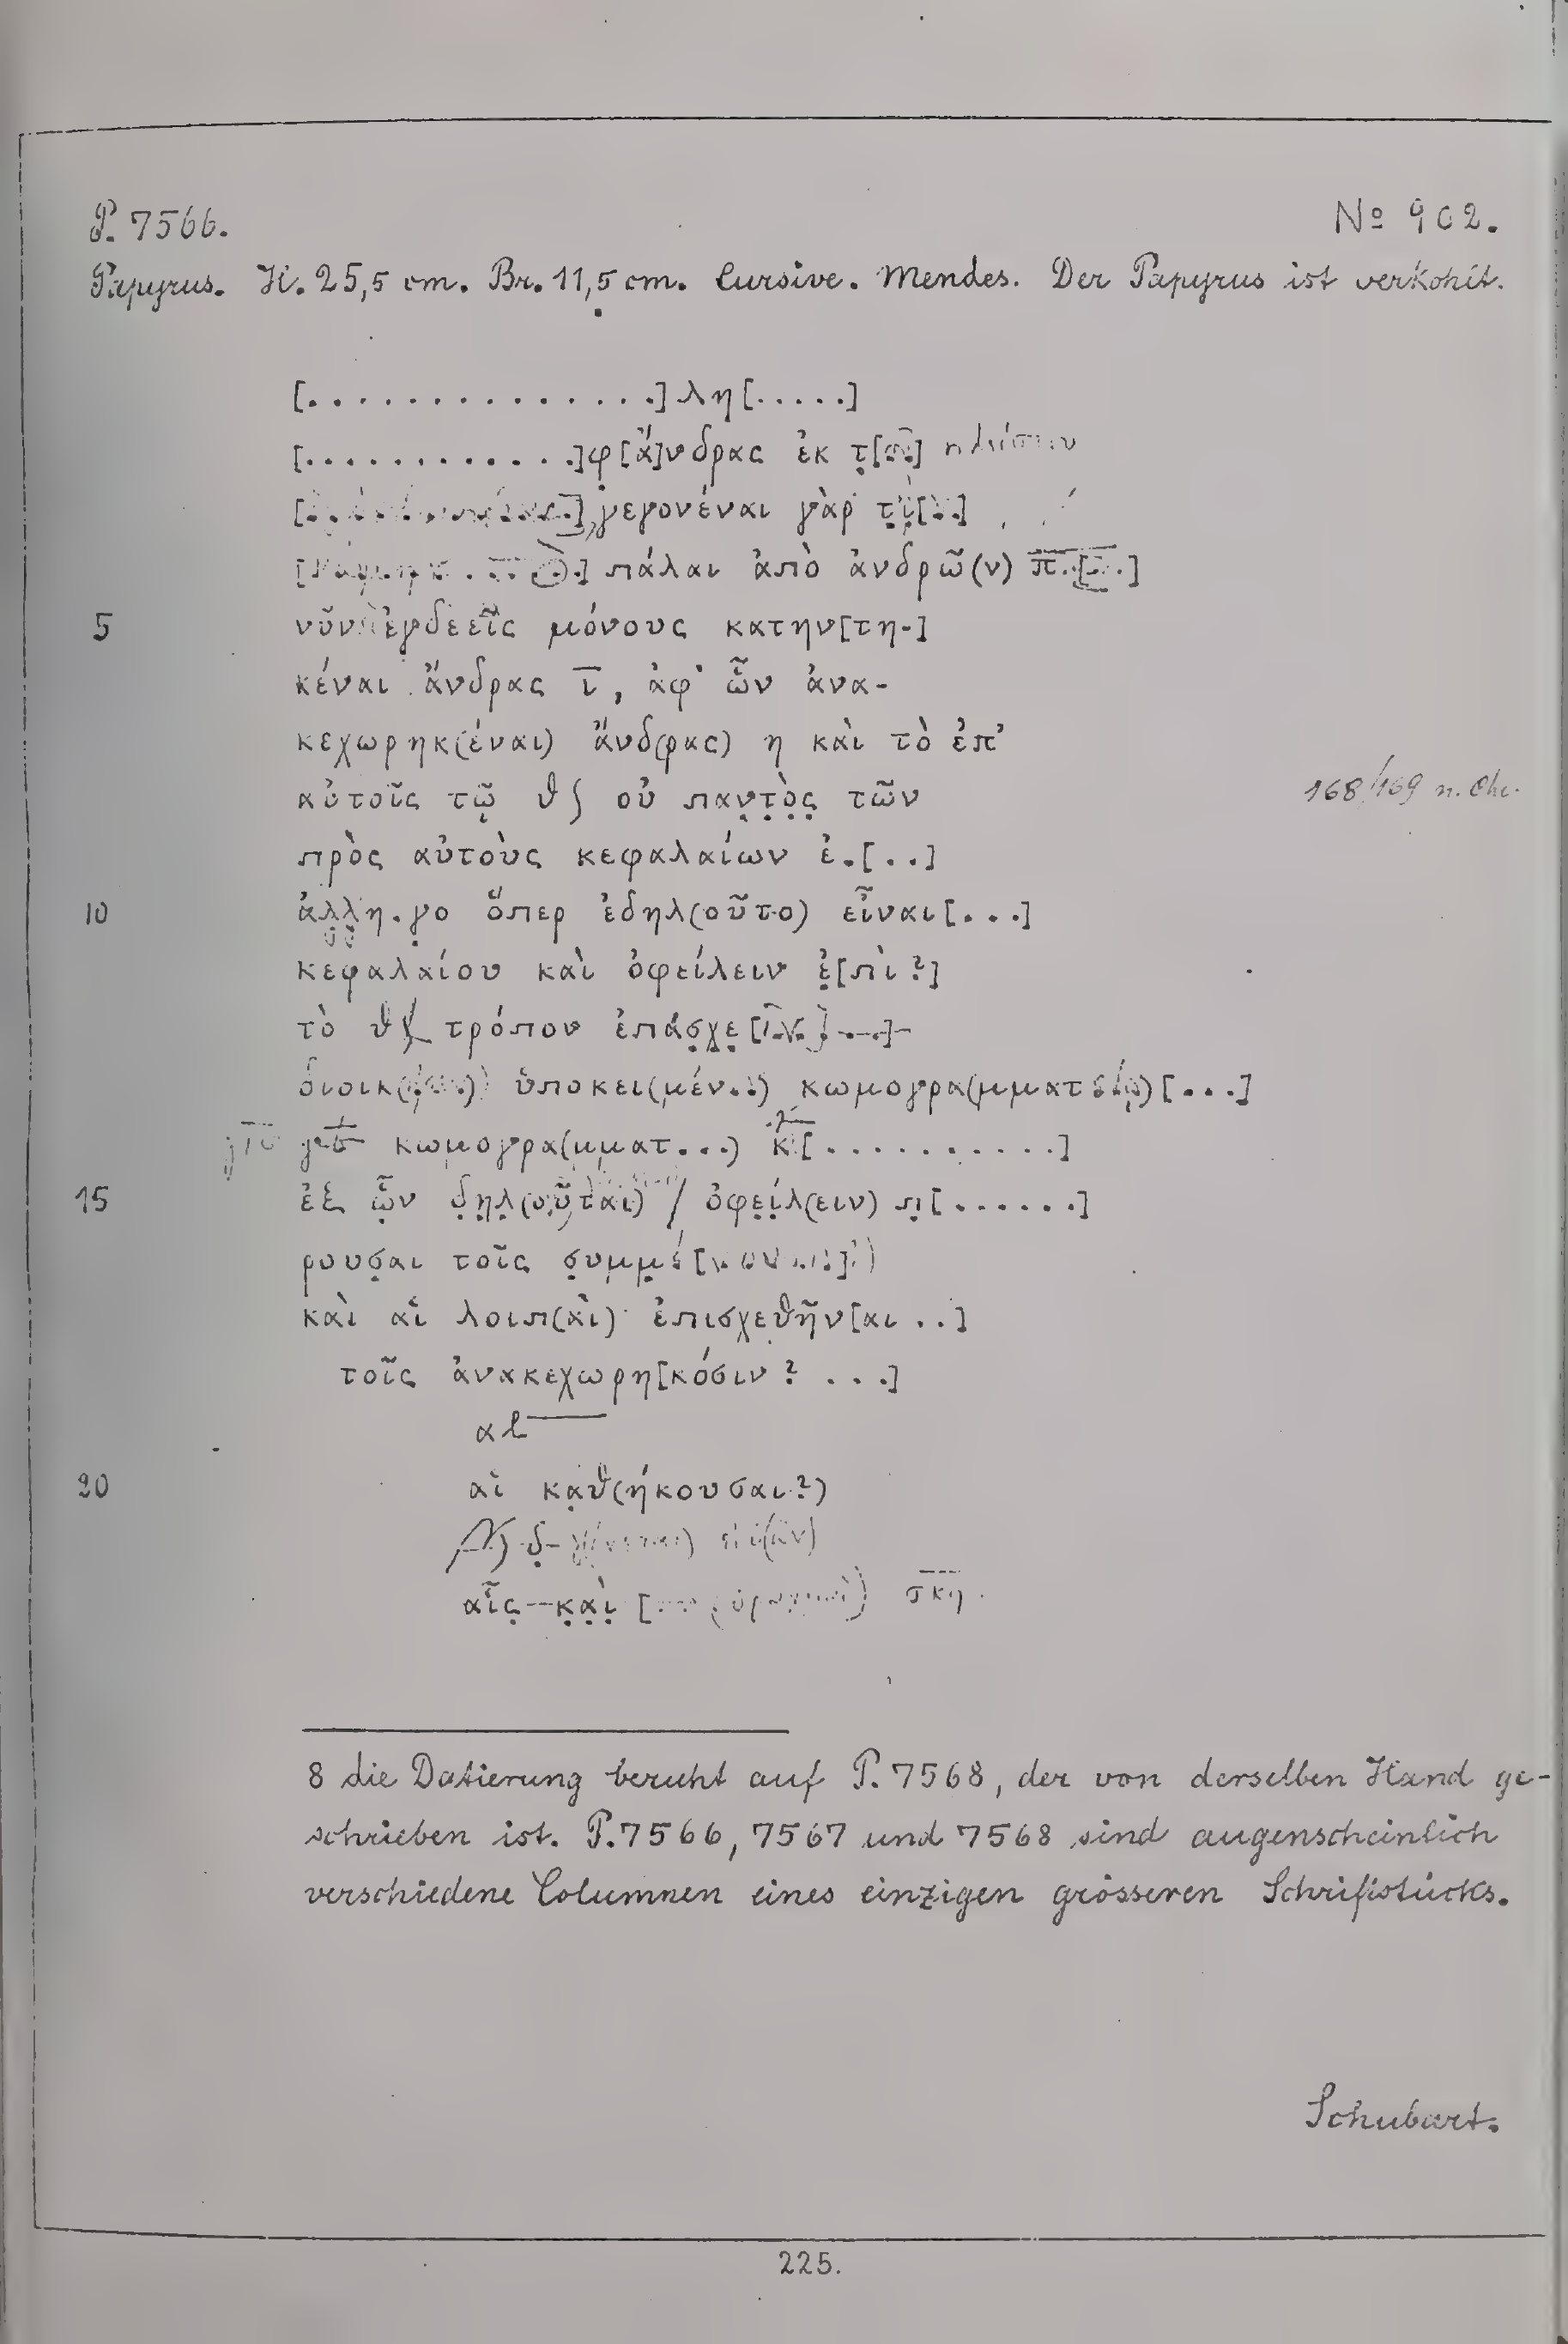 P. 7566.
No 902.
Papyrus. H. 25,5 cm. Br. 11,5 cm. Cursive. Mendes. Der Papyrus ist verkohlt.
[. . . . . . . . . . . . . . .] λη[. . . . .]
[. . . . . . . . . . . .]φ̣[ἄ]νδρας ἐκ τ̣[οῦ]
γεγονέναι γὰρ
πάλαι ἀπὸ ἀνδρῶ(ν)
5 μόνους κατην[τη-]
κέναι ἄνδρας ῑ, ἀφ' ὧν ἀνα-
κεχωρηκ(έναι) ἄνδ(ρας) η καὶ τὸ ἐπ'
αὐτοῖς τῷ θ∫ οὐ παν̣τ̣ὸ̣ς̣ τῶν
168/169 n. Chr.
πρὸς αὐτοὺς κεφαλαίων ἐ.[. .]
10 ἀλ̣λ̣η.γ̣ο ὅπερ ἐδηλ(οῦτο) εἶναι[. . .]
κεφαλαίου καὶ ὀφείλειν ἐ̣[πὶ?]
τὸ τρόπον
ὑποκει(μέν..) κωμογρα(μματ [. . .]
κωμογρα(μματ...) [. . . . . . . . . .]
15 ἐξ ᾧν δ̣η̣λ̣(οῦται) / ὀφε̣ί̣λ(ειν) π̣[. . . . . .]
ρουσ̣αι τοῖς
καὶ αἱ λοιπ(αὶ) ἐπισχεθῆν[αι . .]
τοῖς ἀνακεχωρη[κόσιν? . . .]
20 αἱ κα̣θ(ήκουσαι?)
αἷς̣ κ̣α̣ὶ̣ σκη
8 die Datierung beruht auf P. 7568, der von derselben Hand ge-
schrieben ist. P. 7566, 7567 und 7568 sind augenscheinlich
verschiedene Columnen eines einzigen grösseren Schriftstücks.
Schubart.
225.